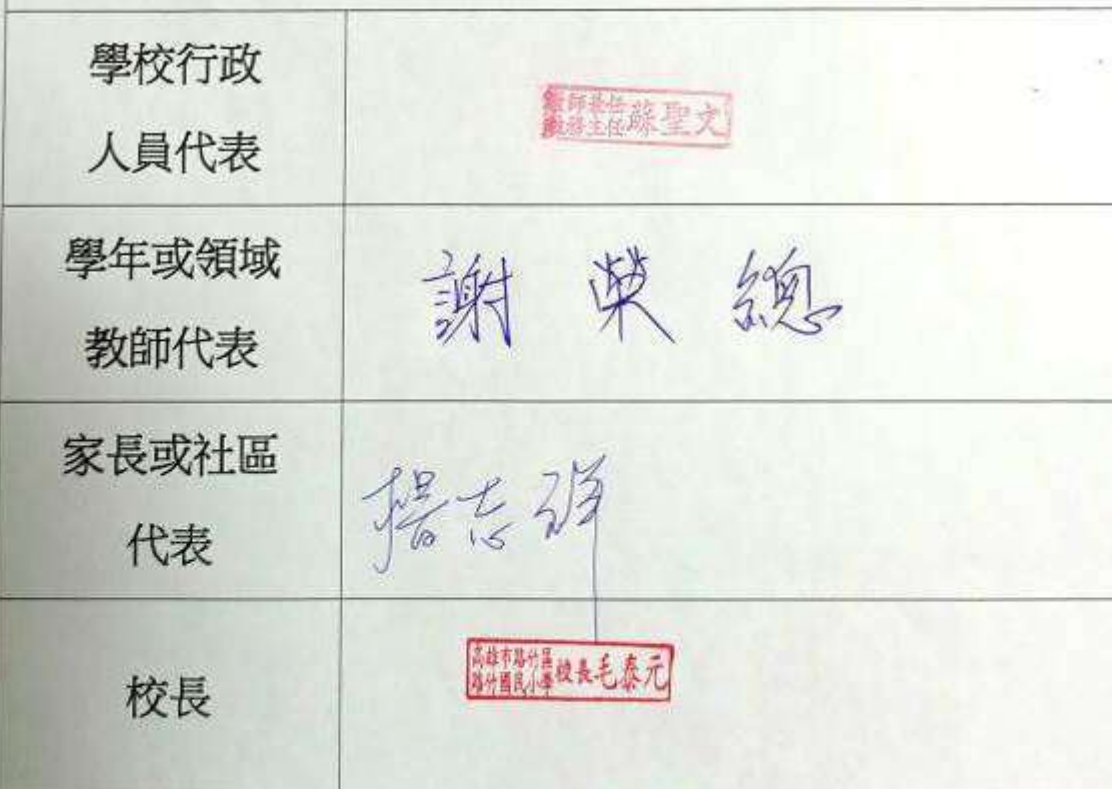 學校行政
人員代表
教師兼任
教務主任
蘇聖文
學年或領域
教師代表
謝榮總
家長或社區
代表
楊志祥
校長
高雄市路竹區
路竹國民小學
校長毛泰元